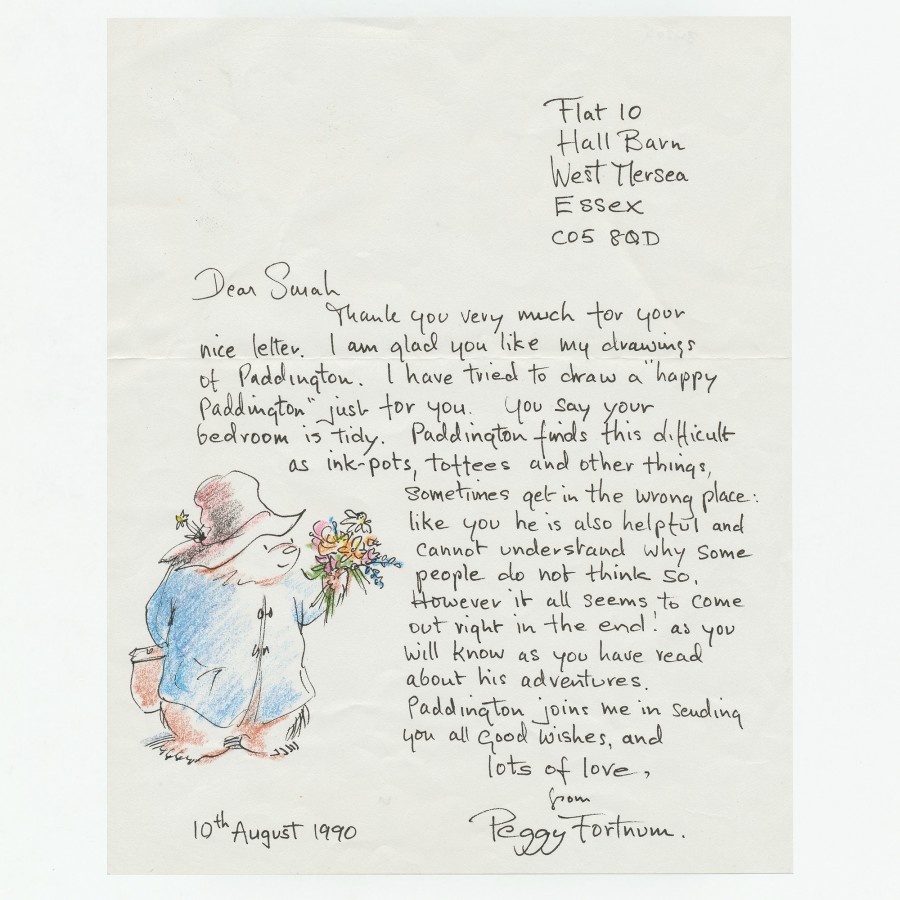 Flat 10
Hall Barn
West Mersea
Essex
CO5 8QD
Dear Sarah
Thank you very much for your
nice letter. I am glad you like my drawings
of Paddington. I have tried to draw a "happy
Paddington" just for you. You say your
bedroom is tidy. Paddington finds this difficult
as ink-pots, toffees and other things,
sometimes get in the wrong place:
like you he is also helpful and
cannot understand why some
people do not think so.
However it all seems to come
out right in the end! as you
will know as you have read
about his adventures.
Paddington joins me in sending
you all Good Wishes, and
lots of love,
from
Peggy Fortnum.
10th August 1990